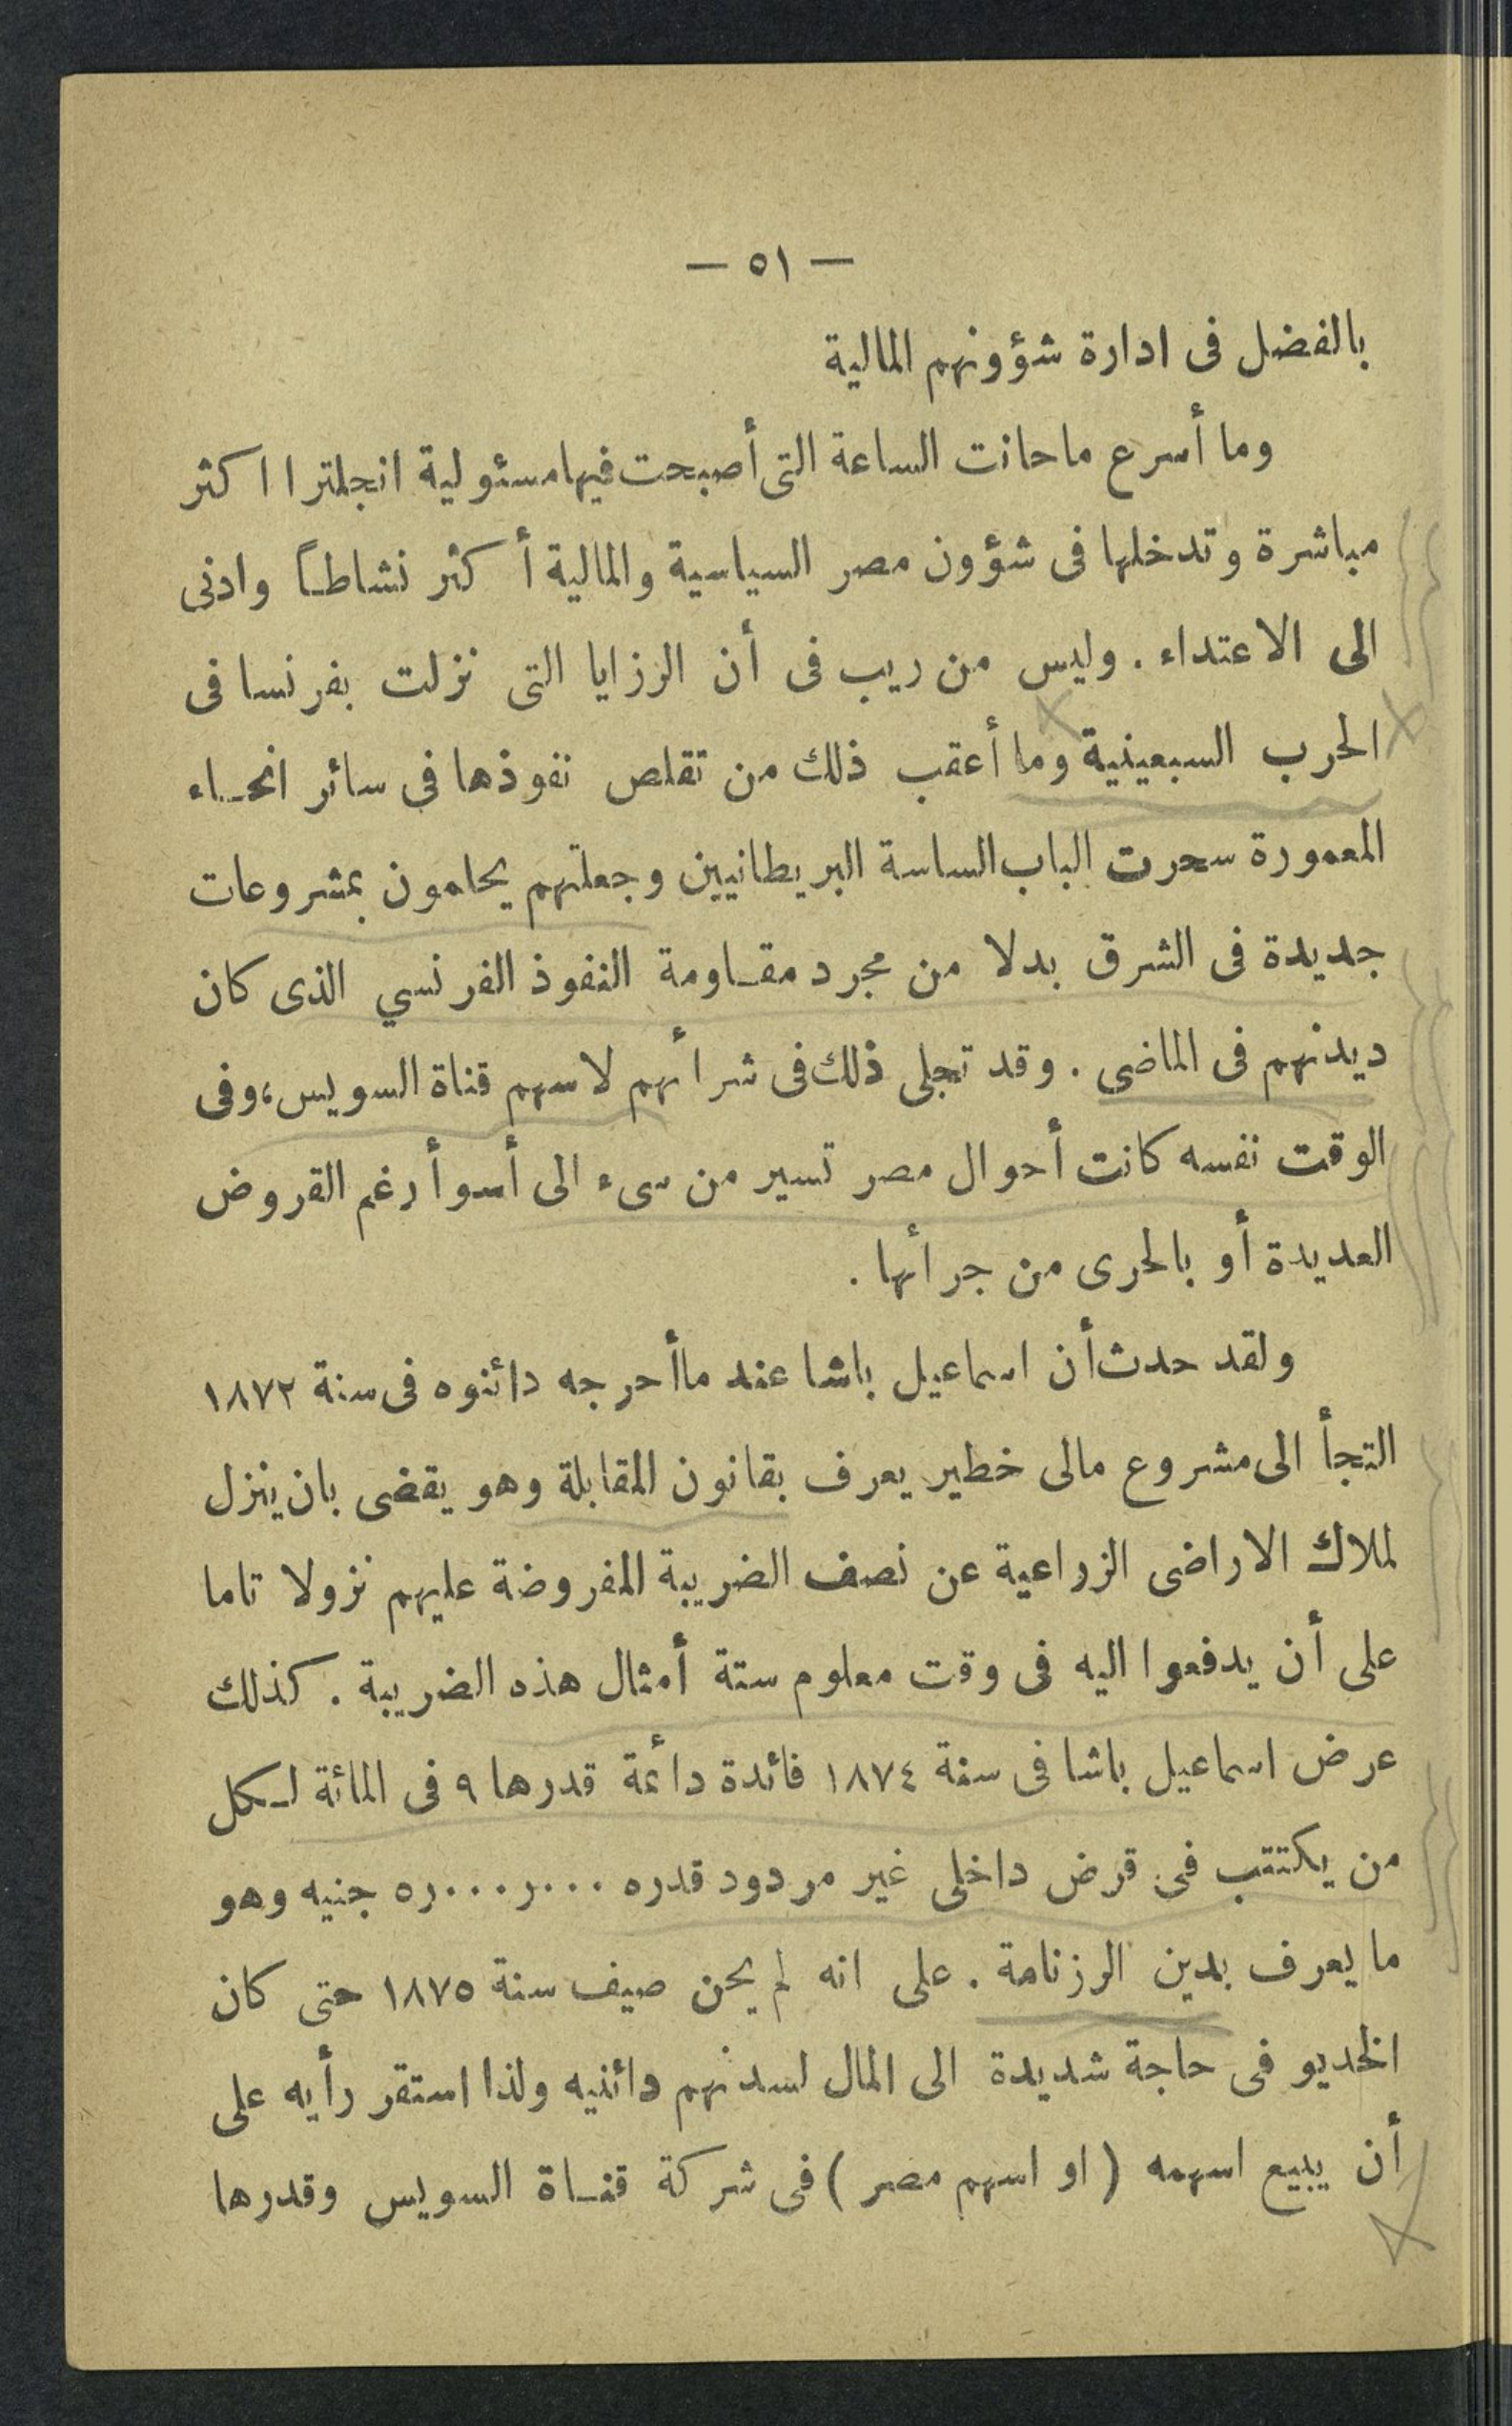 — ٥١ —
بالفضل فى ادارة شؤونهم المالية
وما أسرع ما حانت الساعة التى أصبحت فيها مسئولية انجلترا اكثر
مباشرة وتدخلها فى شؤون مصر السياسية والمالية أكثر نشاطاً وادنى
الى الاعتداء . وليس من ريب فى أن الرزايا التى نزلت بفرنسا فى
الحرب السبعينية وما أعقب ذلك من تقلص نفوذها فى سائر انحاء
المعمورة سحرت الباب الساسة البريطانيين وجعلتهم يحلمون بمشروعات
جديدة فى الشرق بدلا من مجرد مقاومة النفوذ الفرنسي الذى كان
ديدنهم فى الماضى . وقد تجلى ذلك فى شرائهم لاسهم قناة السويس، وفى
الوقت نفسه كانت أحوال مصر تسير من سىء الى أسوأ رغم القروض
العديدة أو بالحرى من جرائها .
ولقد حدث أن اسماعيل باشا عند ما أحرجه دائنوه فى سنة ١٨٧٢
التجأ الى مشروع مالى خطير يعرف بقانون المقابلة وهو يقضى بان ينزل
لملاك الاراضى الزراعية عن نصف الضريبة المفروضة عليهم نزولا تاما
على أن يدفعوا اليه فى وقت معلوم ستة أمثال هذه الضريبة . كذلك
عرض اسماعيل باشا فى سنة ١٨٧٤ فائدة دائمة قدرها ٩ فى المائة لكل
من يكتتب فى قرض داخلى غير مردود قدره ٥ر٠٠٠ر٠٠٠ جنيه وهو
ما يعرف بدين الرزنامة . على انه لم يحن صيف سنة ١٨٧٥ حتى كان
الخديو فى حاجة شديدة الى المال لسد نهم دائنيه ولذا استقر رأيه على
أن يبيع اسهمه ( او اسهم مصر ) فى شركة قناة السويس وقدرها